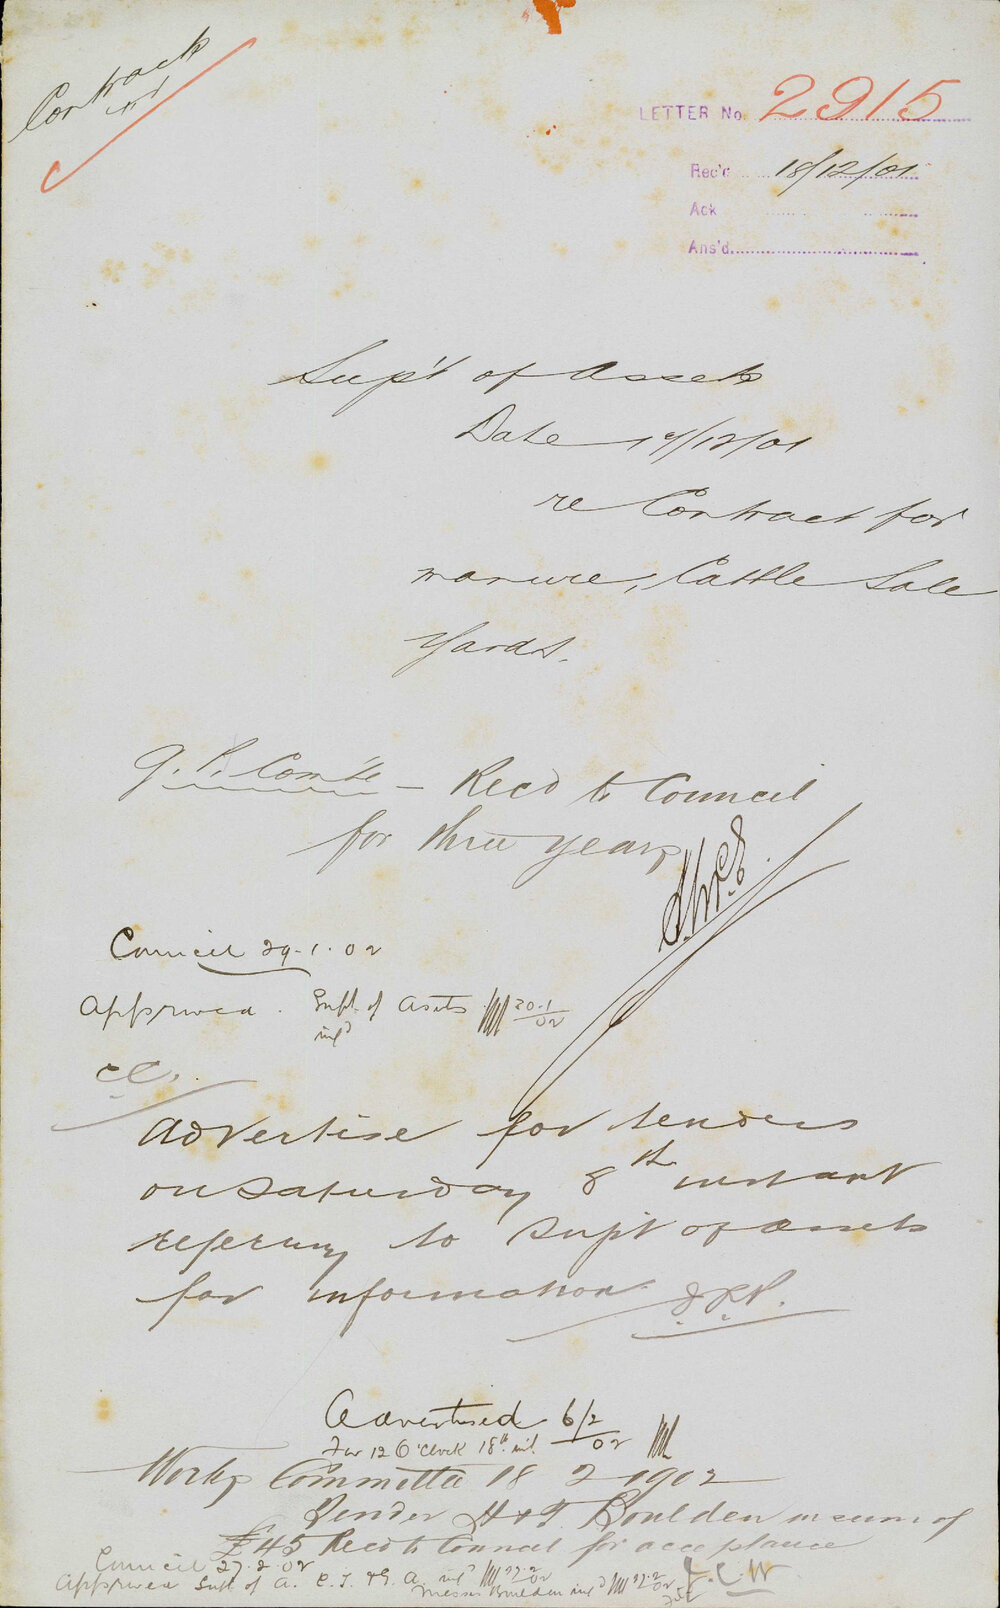 Contract
LETTER No 2915
Rec'd 18/12/01
Ack
Ans'd
Sup't of Assets
Date 17/12/01
re Contract for
manure, Cattle Sale
Yards.
G. P. Com'tee – Recd to Council
for three years
Council 29.1.02
Approved. Supt. of Assets 30.1/02
inf'd
CC.
Advertise for tenders
on Saturday 8th instant
refering to Supt of assets
for information
Advertised 6/2/02
For 12 O'Clock 18th inst.
Works Committee 18 2 1902
Tender H & T Boulden in sum of
£45 Recd to Council for acceptance
Council 27.2.02
Approved Supt. of A. C. T. & G. A. inf'd 27.2/02
Messrs Boulden inf'd 27.2/02